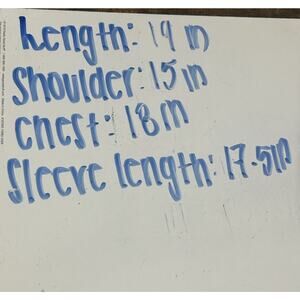 Length: 19 in
shoulder: 15 in
chest: 18 in
Sleeve length: 17.5 in